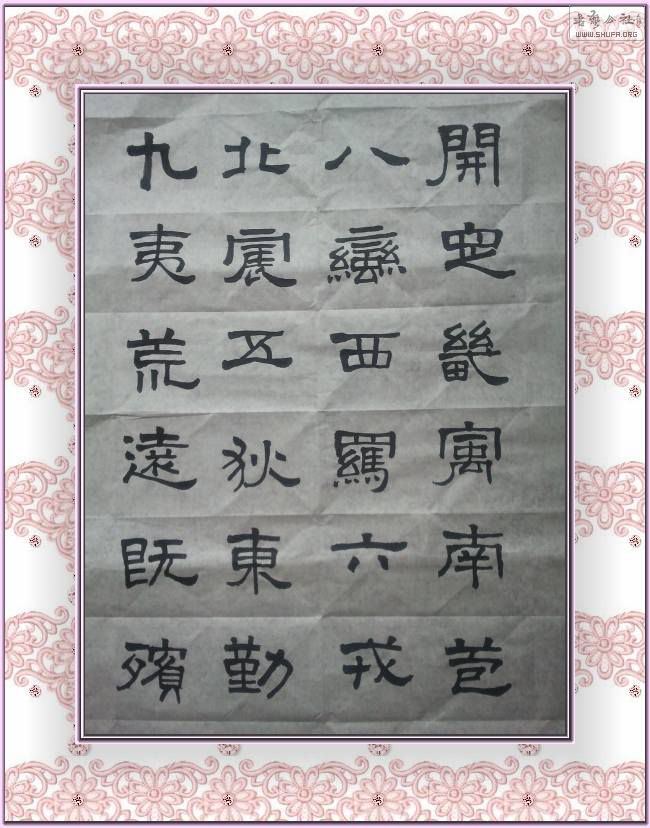 開定畿寓南苞
八蠻西羈六戎
北震五狄東勤
九夷荒遠既殯
書藝公社
WWW.SHUFA.ORG